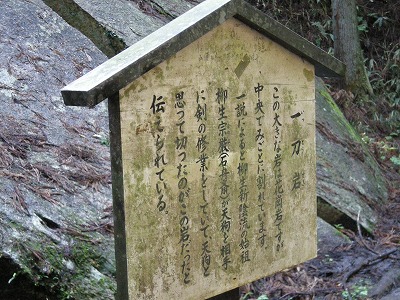 一刀岩
この大きな岩は花崗岩ですが
中央でみごとに割れています。
一説によると柳生新陰流の始祖
柳生宗厳(石舟斎)が天狗を相手
に剣の修業をしていて天狗と
思って切ったのがこの岩だったと
伝えられている。